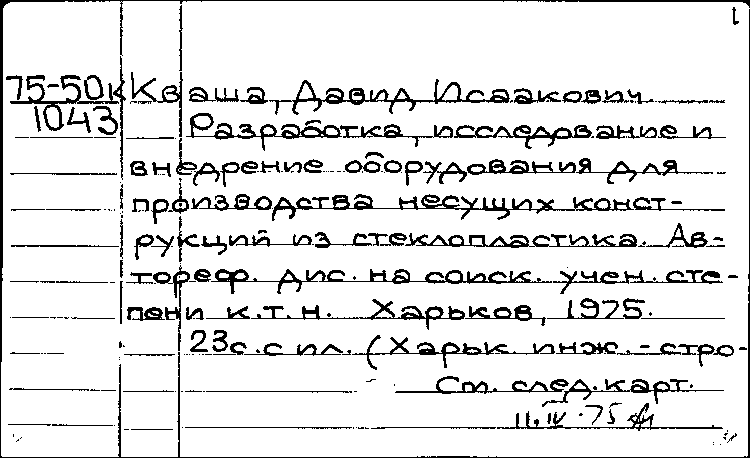 1
75-50к Кваша, Давид Исаакович.
1043 Разработка, исследование и
внедрение оборудования для
производства несущих конст-
рукций из стеклопластика. Ав-
тореф. дис. на соиск. учен. сте-
пени к.т.н. Харьков, 1975.
23с. с ил. (Харьк. инж.-стро-
См. след. карт.
11.IV.75